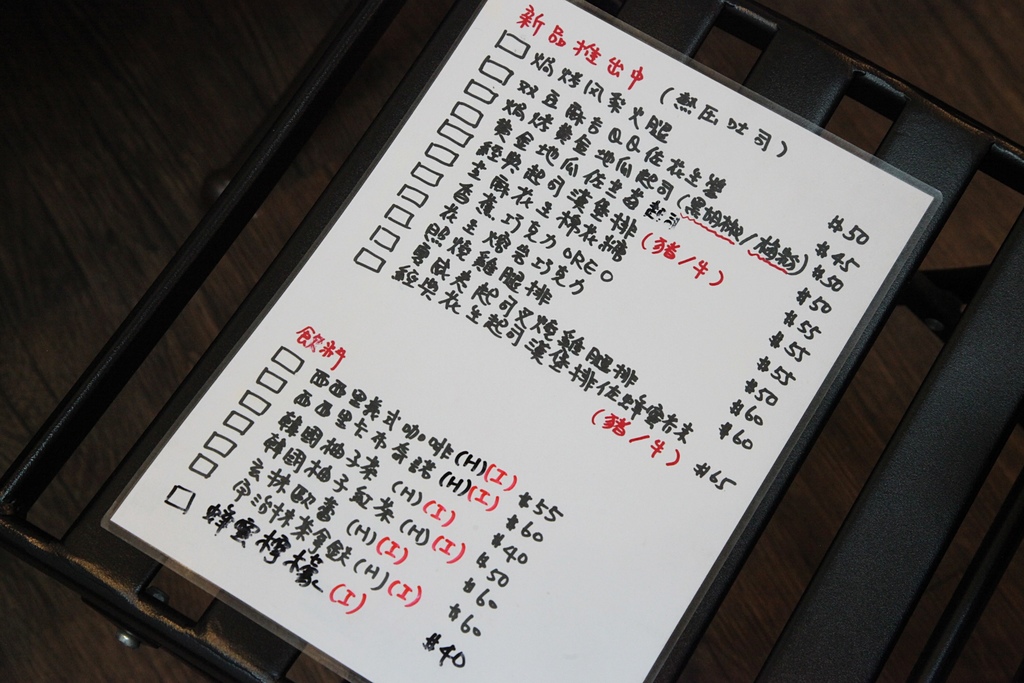 新品推出中 (熱压吐司)
焗烤风梨火腿 $50
双豆酥吉QQ佐花生醬 $45
焗烤黄金地瓜起司(黑胡椒/梅粉) $50
黄金地瓜佐 $50
經典起司漢堡排 (豬/牛) $55
花生棉花糖 $55
香蕉巧克力OREO $55
花生 巧克力 $50
照燒雞腿排 $60
夏威夷起司叉燒雞腿排 $60
經典花生起司漢堡排佐蜂蜜芥末 (豬/牛) $65
飲料
西西里美式咖啡(H)(I) $55
西西里卡布奇諾(H)(I) $60
韓國柚子茶 (H)(I) $40
韓國柚子紅茶(H)(I) $50
玄 歐蕾 (H)(I) $60
宇治抹茶拿鉄(H)(I) $60
蜂蜜檸檬(I) $40